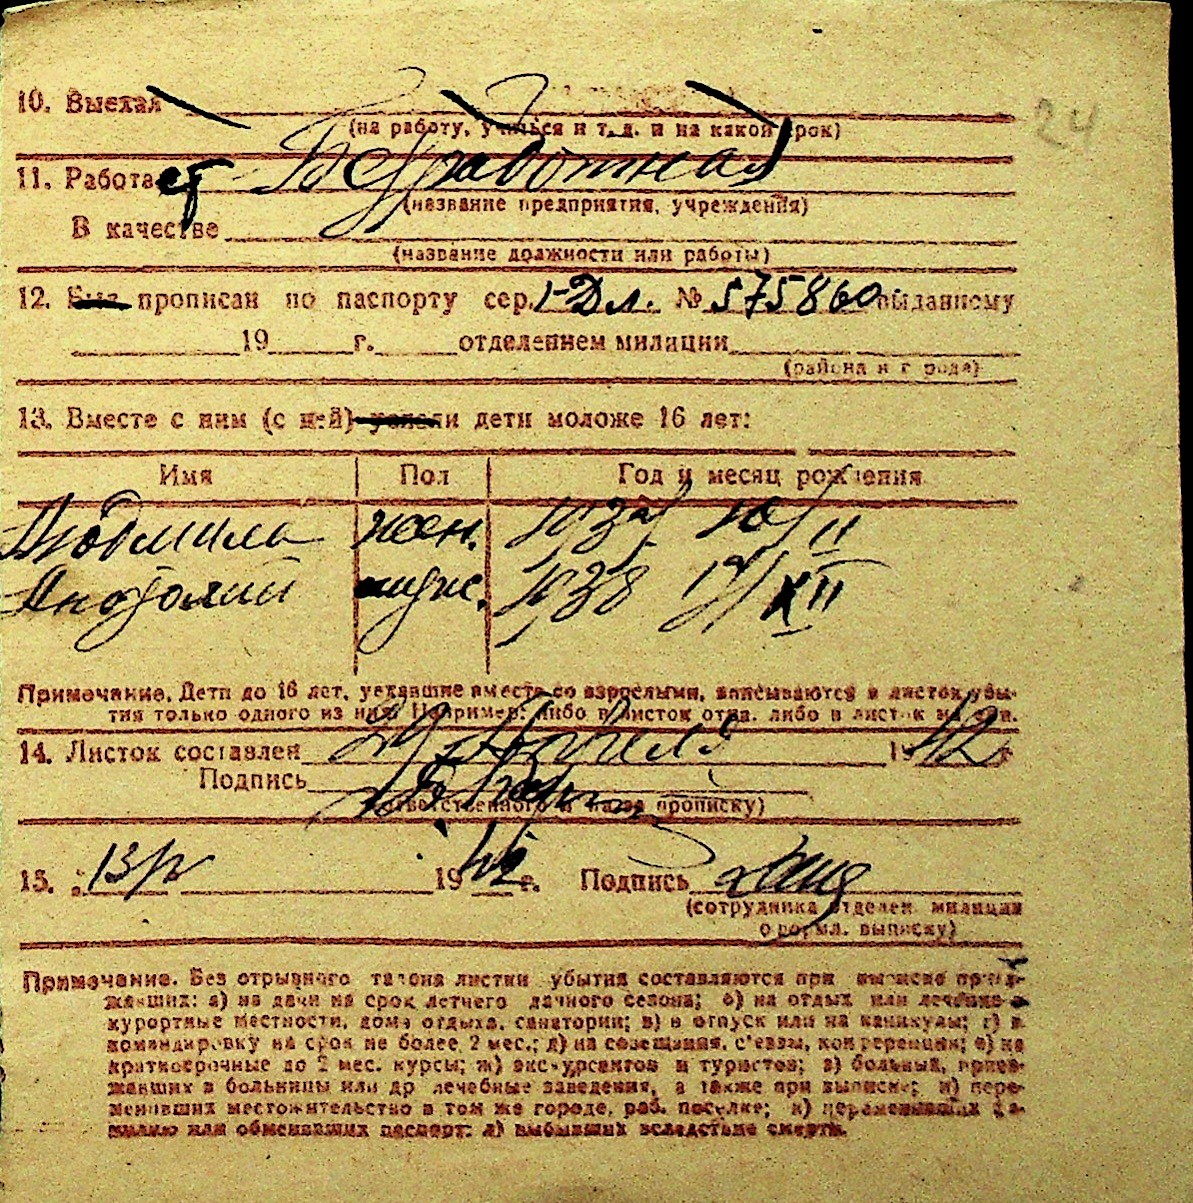 24
10. Выехал
(на работу, учиться и т. д. и на какой срок)
11. Работает Безработная
(название предприятия, учреждения)
В качестве
(название должности или работы)
12. Был прописан по паспорту сер. I-Дл. № 575860 выданному
19 г. отделением милиции
(района и города)
13. Вместе с ним (с ней) уехали дети моложе 16 лет:
Имя Пол Год и месяц рождения
Людмила жен. 10/II
Анатолий муж. 1938 17/XII
Примечание. Дети до 16 лет, уехавшие вместе со взрослыми, вписываются в листок убы-
тия только одного из них. Например: либо в листок отца, либо в листок матери.
14. Листок составлен 1942
Подпись
(ответственного за прописку)
15. „13/ 1942 г. Подпись
(сотрудника отделен. милиции
оформл. выписку)
Примечание. Без отрывного талона листки убытия составляются при выписке проез-
жавших: а) на дачи на срок летнего дачного сезона; б) на отдых или лечение в
курортные местности, дома отдыха, санатории; в) в отпуск или на каникулы; г) в
командировку на срок не более 2 мес.; д) на совещания, с'езды, конференции; е) на
краткосрочные до 2 мес. курсы; ж) экскурсантов и туристов; з) больных, приез-
жавших в больницы или др лечебные заведения, а также при выписке; и) пере-
менивших местожительство в том же городе, раб. поселке; к) переменивших фа-
милию или обменявших паспорт; л) выбывших вследствие смерти.